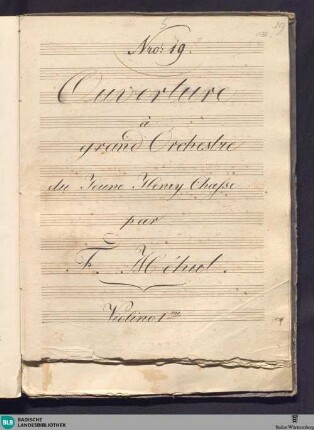 Nro: 19.
Ouverture
à
grand Orchestre
du Jeune Henry Chasse
par
F. Méhul.
Violino 1mo
BLB BADISCHE
LANDESBIBLIOTHEK
Baden-Württemberg